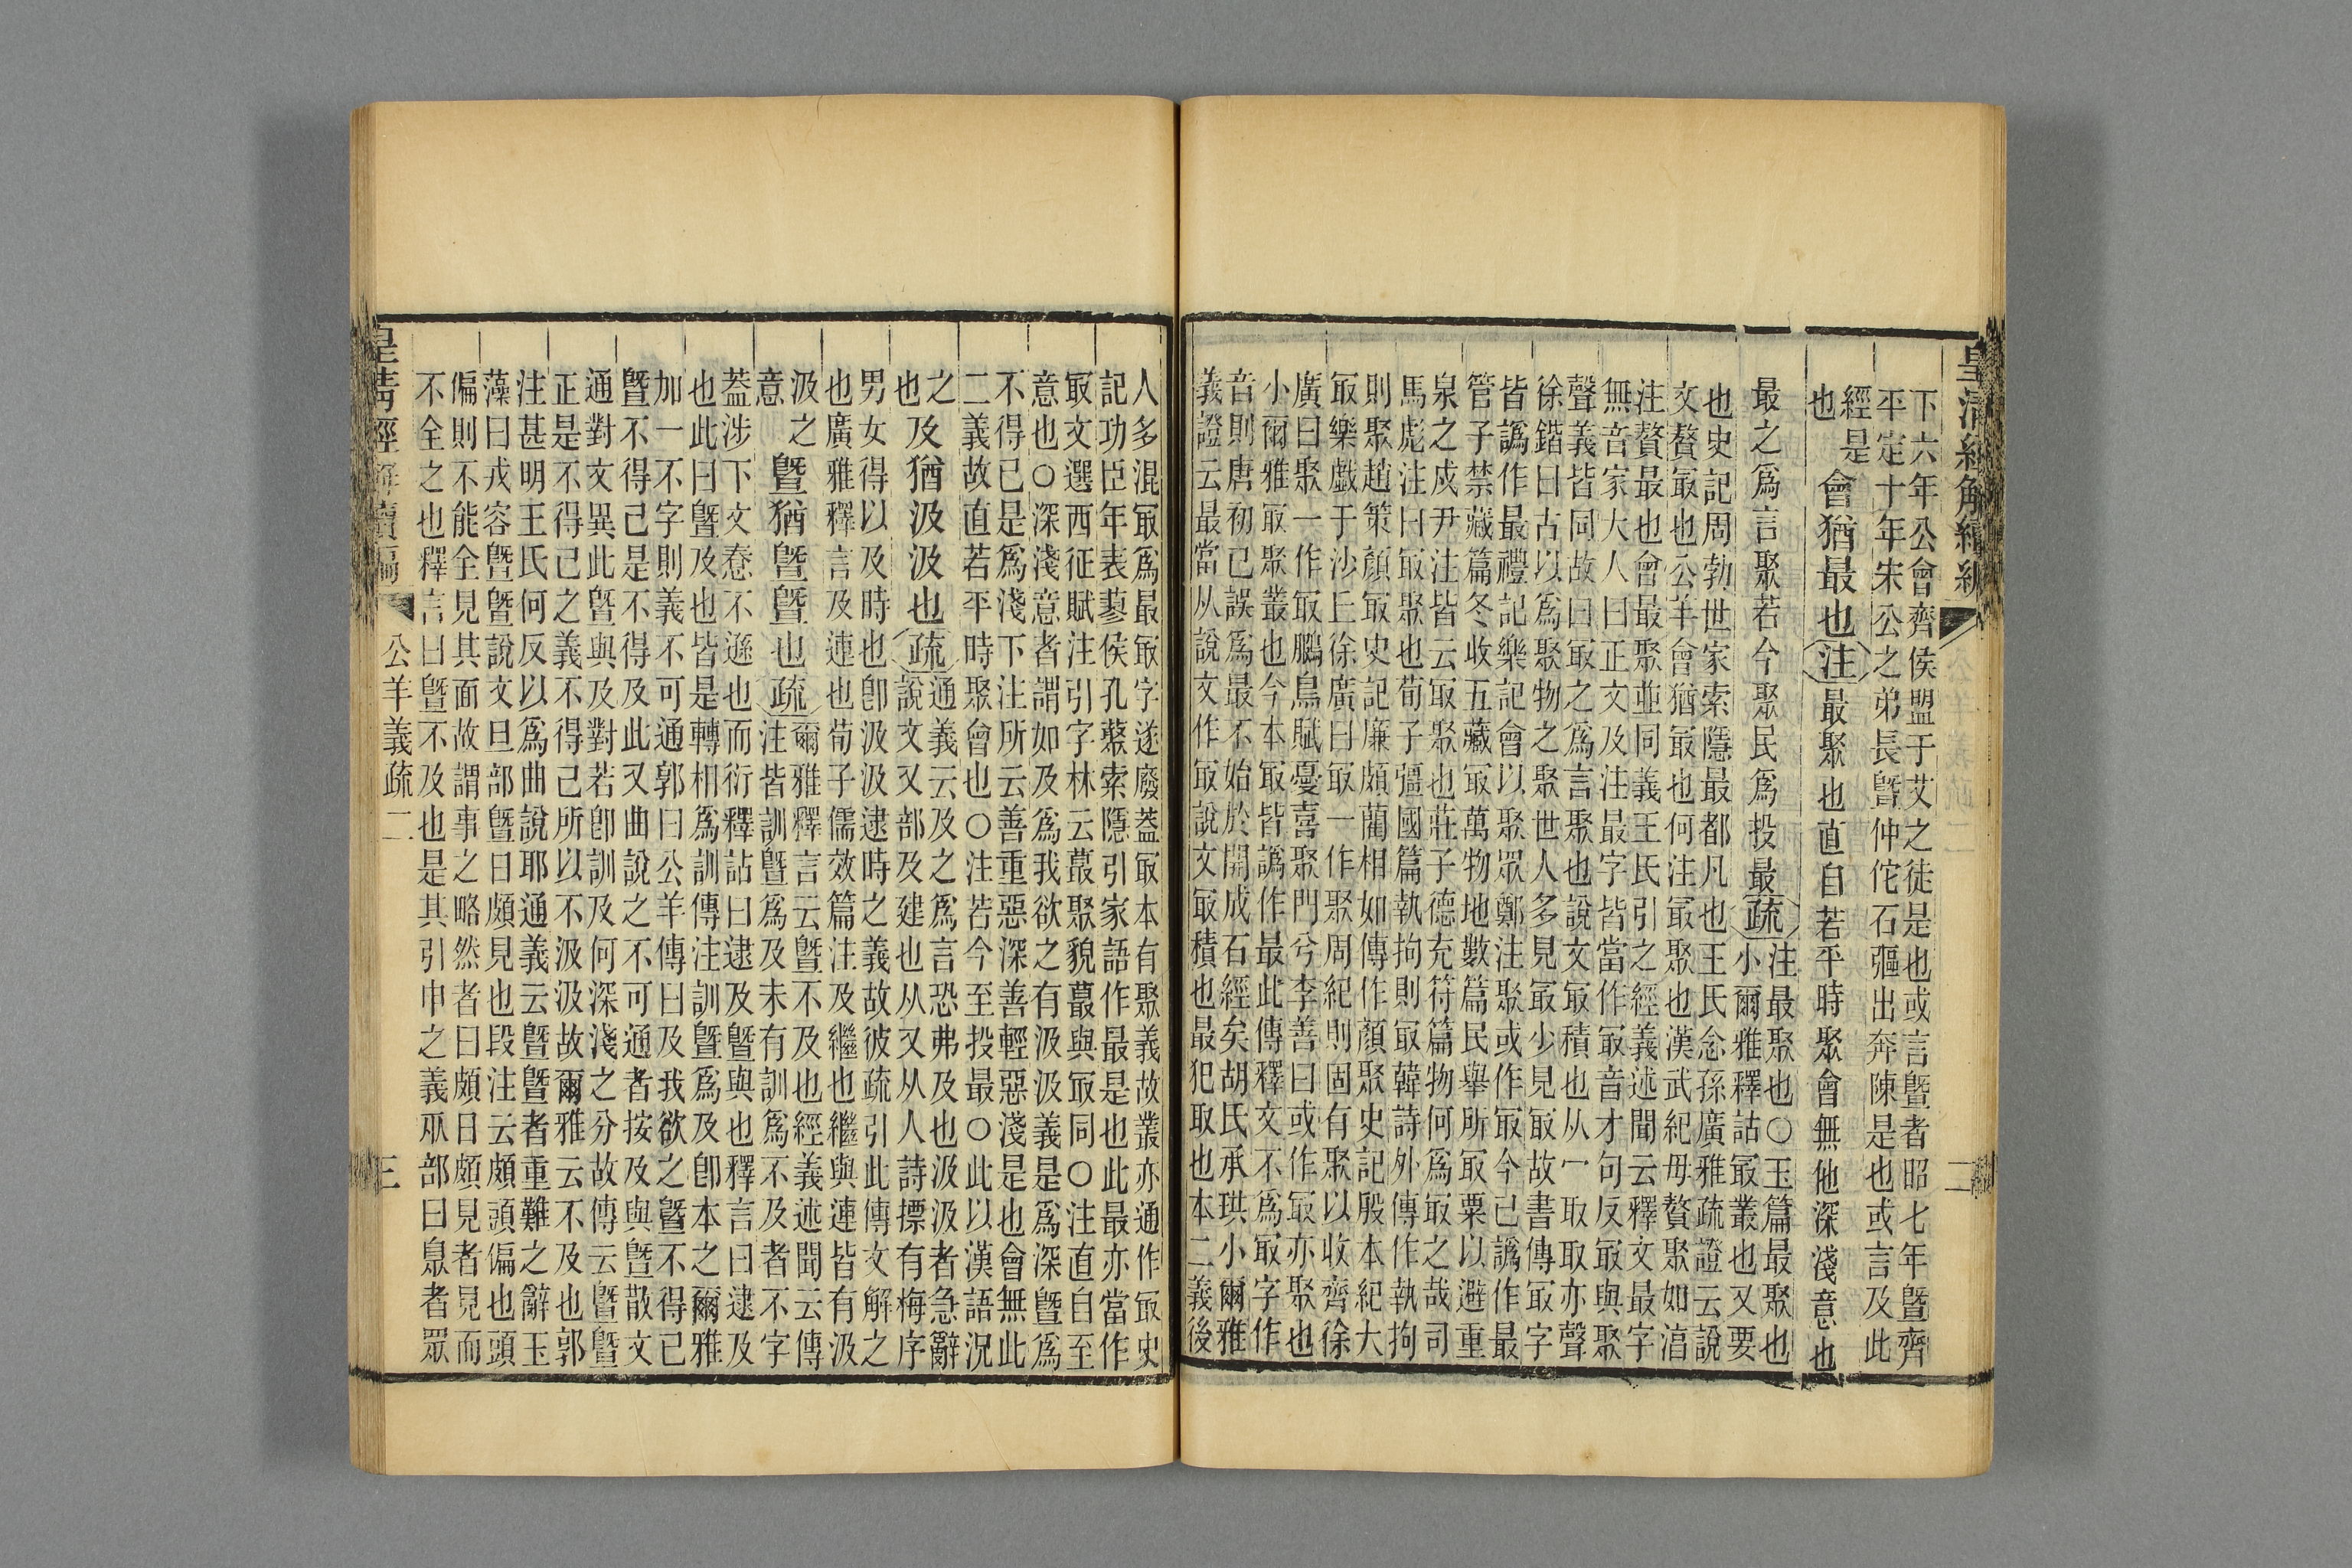 皇清經解續編
二
下六年公會齊侯盟于艾之徒是也或言暨者昭七年暨齊
平定十年宋公之弟長暨仲佗石彄出奔陳是也或言及此
經是
也
會猶最也
注
最聚也直自若平時聚會無他深淺意也
最之爲言聚若今聚民爲投最
疏
注最聚也○玉篇最聚也
小爾雅釋詁冣叢也又要
也史記周勃世家索隱最都凡也王氏念孫廣雅疏證云說
文贅冣也公羊會猶冣也何注冣聚也漢武紀毋贅聚如湻
注贅最也會最聚並同義王氏引之經義述聞云釋文最字
無音家大人曰正文及注最字皆當作冣音才句反冣與聚
聲義皆同故曰冣之爲言聚也說文冣積也从冖取取亦聲
徐鍇曰古以爲聚物之聚世人多見冣少見冣故書傳冣字
皆譌作最禮記樂記會以聚眾鄭注聚或作冣今已譌作最
管子禁藏篇冬收五藏冣萬物地數篇民舉所冣粟以避重
泉之戍尹注皆云冣聚也莊子德充符篇物何爲冣之哉司
馬彪注曰冣聚也荀子彊國篇執拘則冣韓詩外傳作執拘
則聚趙策顏冣史記廉頗藺相如傳作顏聚史記殷本紀大
冣樂戲于沙丘徐廣曰冣一作聚周紀則固有聚以收齊徐
廣曰聚一作冣鵩鳥賦憂喜聚門兮李善曰或作冣亦聚也
小爾雅冣聚叢也今本冣皆譌作最此傳釋文不爲冣字作
音則唐初已誤爲最不始於開成石經矣胡氏承珙小爾雅
義證云最當从說文作冣說文冣積也最犯取也本二義後
人多混冣爲最冣字遂廢葢冣本有聚義故叢亦通作冣史
記功臣年表蓼侯孔藂索隱引家語作最是也此最亦當作
冣文選西征賦注引字林云蕞聚貌蕞與冣同○注直自至
意也○深淺意者謂如及爲我欲之有汲汲義是爲深暨爲
不得已是爲淺下注所云善重惡深善輕惡淺是也會無此
二義故直若平時聚會也○注若今至投最○此以漢語況
之
也
及猶汲汲也
疏
通義云及之爲言恐弗及也汲汲者急辭
說文又部及建也从又从人詩摽有梅序
男女得以及時也卽汲汲逮時之義故彼疏引此傳文解之
也廣雅釋言及連也荀子儒效篇注及繼也繼與連皆有汲
汲之
意
暨猶暨暨也
疏
爾雅釋言云暨不及也經義述聞云傳
注皆訓暨爲及未有訓爲不及者不字
葢涉下文惷不遜也而衍釋詁曰逮及暨與也釋言曰逮及
也此曰暨及也皆是轉相爲訓傳注訓暨爲及卽本之爾雅
加一不字則義不可通郭曰公羊傳曰及我欲之暨不得已
暨不得己是不得及此又曲說之不可通者按及與暨散文
通對文異此暨與及對若卽訓及何深淺之分故傳云暨暨
正是不得己之義不得己所以不汲汲故爾雅云不及也郭
注甚明王氏何反以爲曲說耶通義云暨暨者重難之辭玉
藻曰戎容暨暨說文旦部暨曰頗見也段注云頗頭偏也頭
偏則不能全見其面故謂事之略然者曰頗日頗見者見而
不全之也釋言曰暨不及也是其引申之義㐺部曰㒯者眾
皇清經解續編
公羊義疏二
三